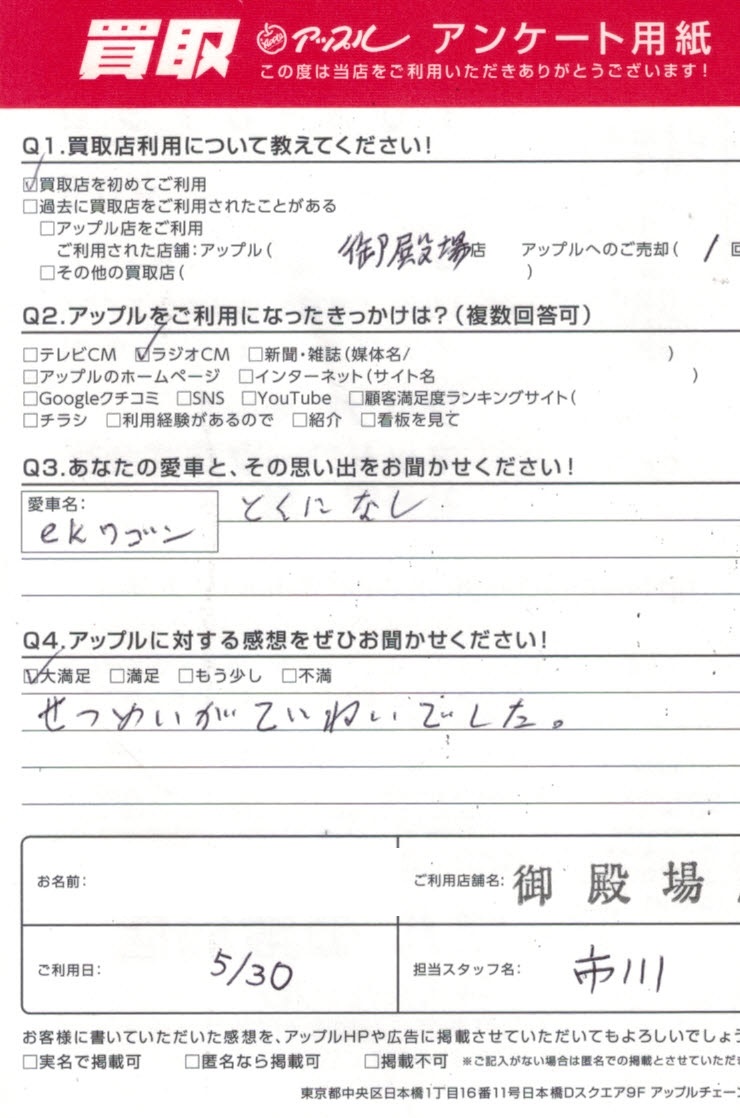 買取 アップル アンケート用紙
この度は当店をご利用いただきありがとうございます！
Q1.買取店利用について教えてください！
☑買取店を初めてご利用
□過去に買取店をご利用されたことがある
□アップル店をご利用
ご利用された店舗：アップル（ 御殿場店 アップルへのご売却（ 1 回
□その他の買取店（ ）
Q2.アップルをご利用になったきっかけは？（複数回答可）
□テレビCM ☑ラジオCM □新聞・雑誌（媒体名/ ）
□アップルのホームページ □インターネット（サイト名 ）
□Googleクチコミ □SNS □YouTube □顧客満足度ランキングサイト（
□チラシ □利用経験があるので □紹介 □看板を見て
Q3.あなたの愛車と、その思い出をお聞かせください！
愛車名： とくになし
ekワゴン
Q4.アップルに対する感想をぜひお聞かせください！
☑大満足 □満足 □もう少し □不満
せつめいがていねいでした。
お名前： ご利用店舗名： 御殿場
ご利用日： 5/30 担当スタッフ名： 市川
お客様に書いていただいた感想を、アップルHPや広告に掲載させていただいてもよろしいでしょう
□実名で掲載可 □匿名なら掲載可 □掲載不可 ※ご記入がない場合は匿名での掲載とさせていただき
東京都中央区日本橋1丁目16番11号日本橋Dスクエア9F アップルチェーン